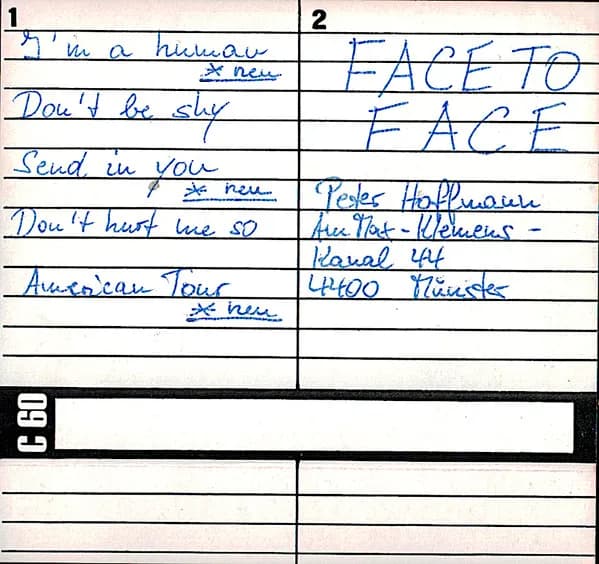 1
I'm a human
* neu
Don't be shy
Send in you
* neu
Don't hurt me so
American Tour
* neu
2
FACE TO
FACE
Peter Hoffmann
Am Max-Klemens-
Kanal 44
4400 Münster
C 60